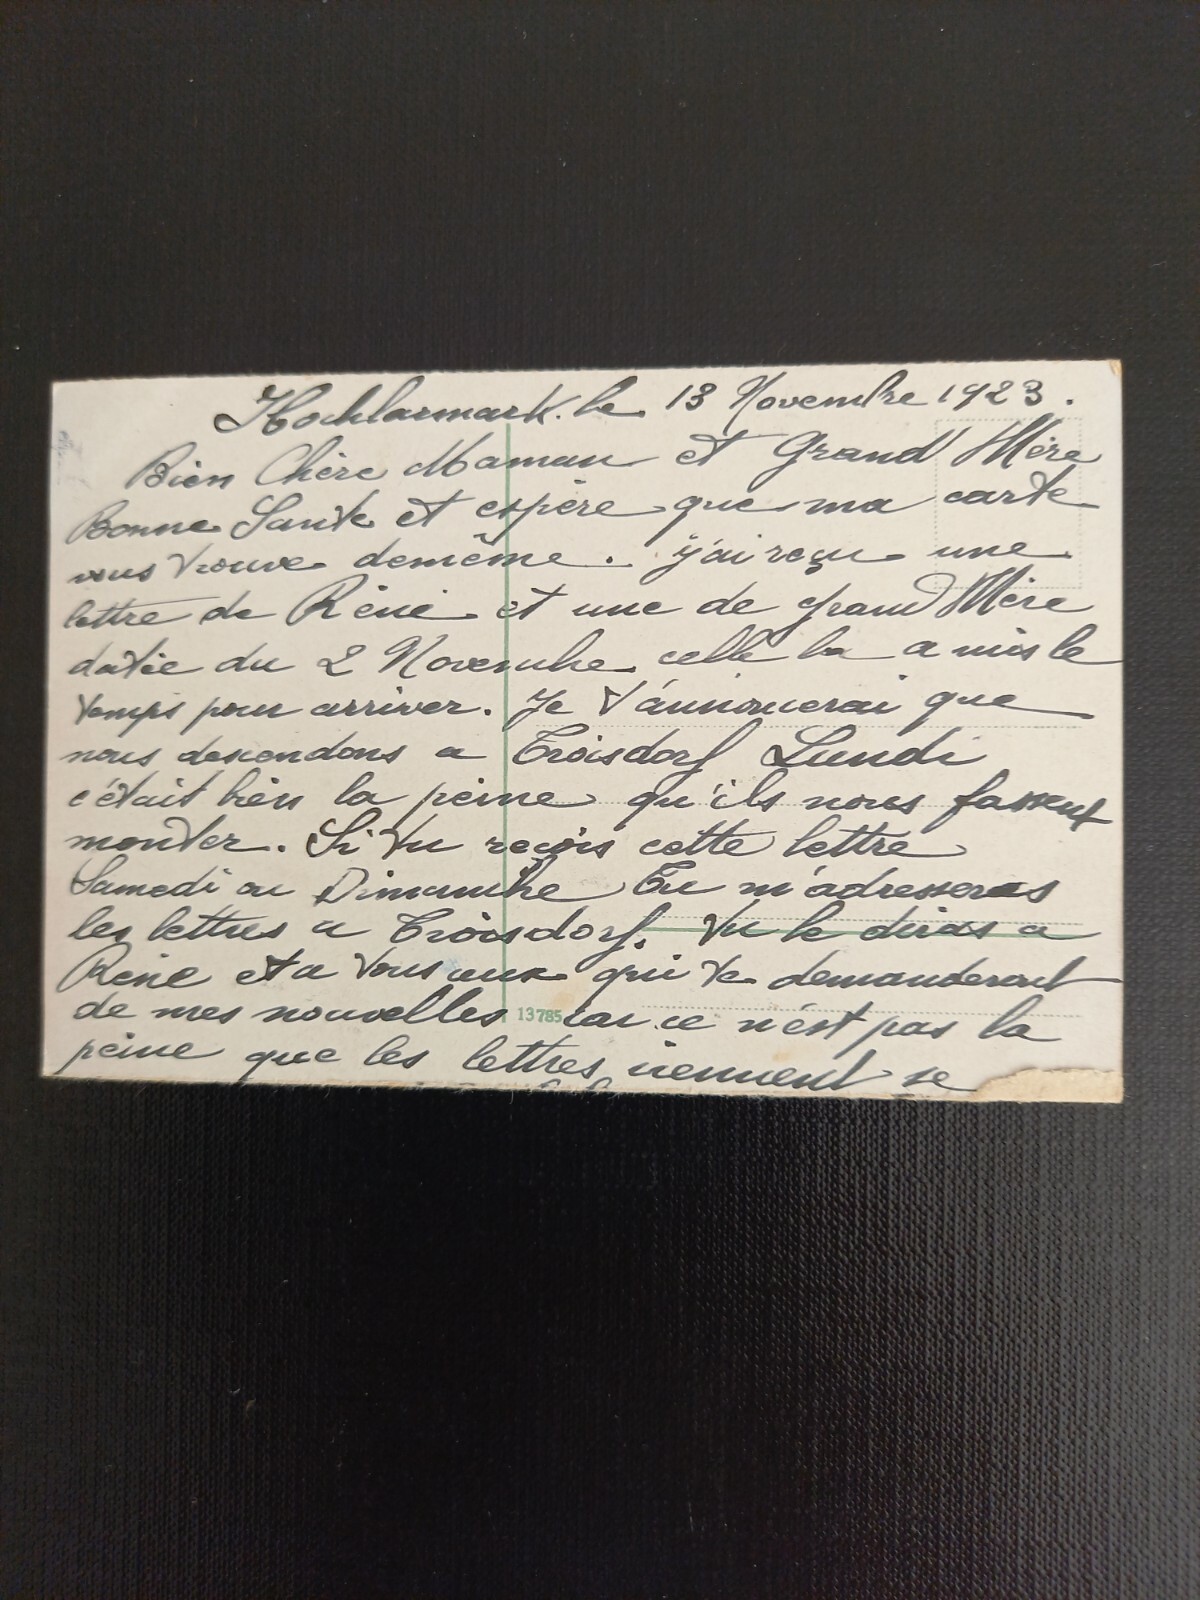 Hochlarmark. le 13 Novembre 1923.
Bien Chère Maman et Grand Mère
Bonne Santé et espère que ma carte
vous trouve demême. j'ai reçu une
lettre de Réné et une de grand Mère
datée du 2 Novembre celle la a mis le
temps pour arriver. Je t'annoncerai que
nous descendons a Troisdorf Lundi
c'était bien la peine qu'ils nous fassent
monter. Si tu reçois cette lettre
Samedi ou Dimanche Tu m'adresseras
les lettres a Troisdorf. tu le diras a
Réne et a tous ceux qui te demanderont
de mes nouvelles car ce n'est pas la
13785
peine que les lettres viennent se